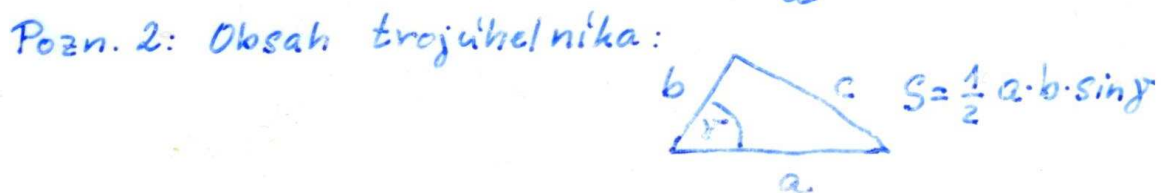 Pozn. 2: Obsah trojúhelníka:
b c S = 1/2 a·b·sinγ
γ
a